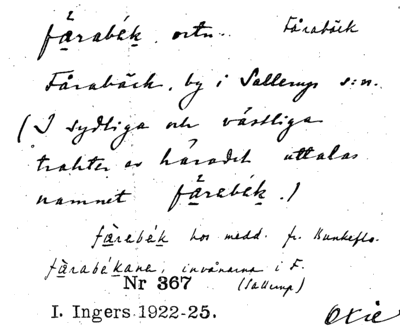 fårabék. ortn. Fårabäck
Fårabäck, by i Sallerup s:n.
(I sydliga och västliga
trakter av häradet uttalas
namnet fårebék.)
fårebék hos medd. fr. Bunkeflo.
fårabékana, invånarna i F.
(Sallerup)
Nr 367
I. Ingers 1922-25. Oxie